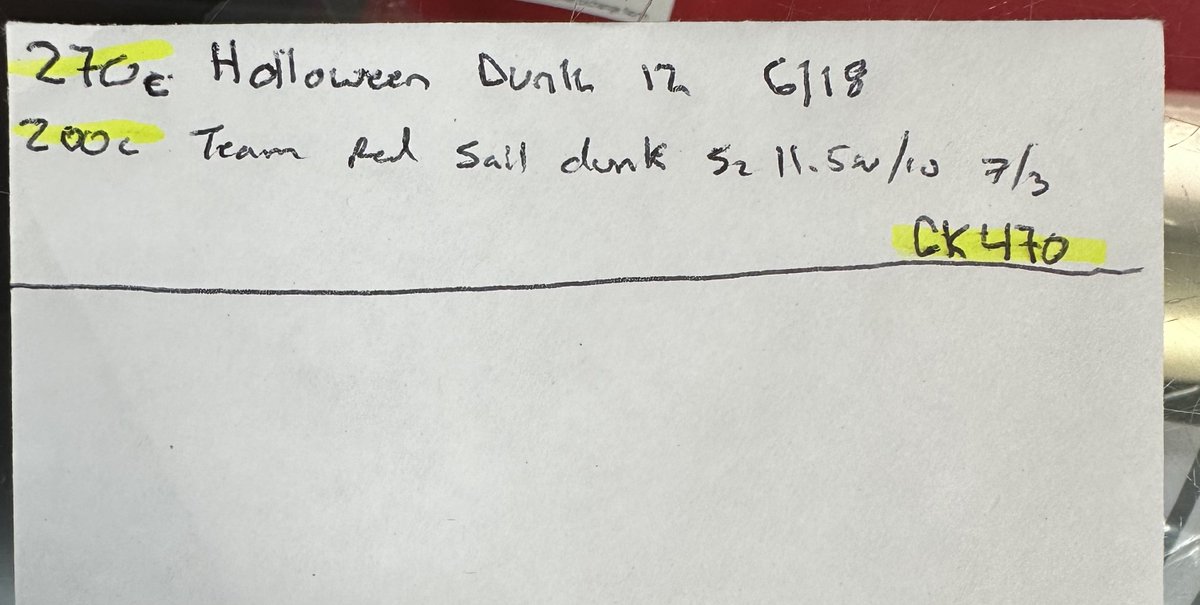 270c Halloween Dunk 12 6/18
200c Team Red Sail dunk Sz 11.5w/10 7/3
CK 470